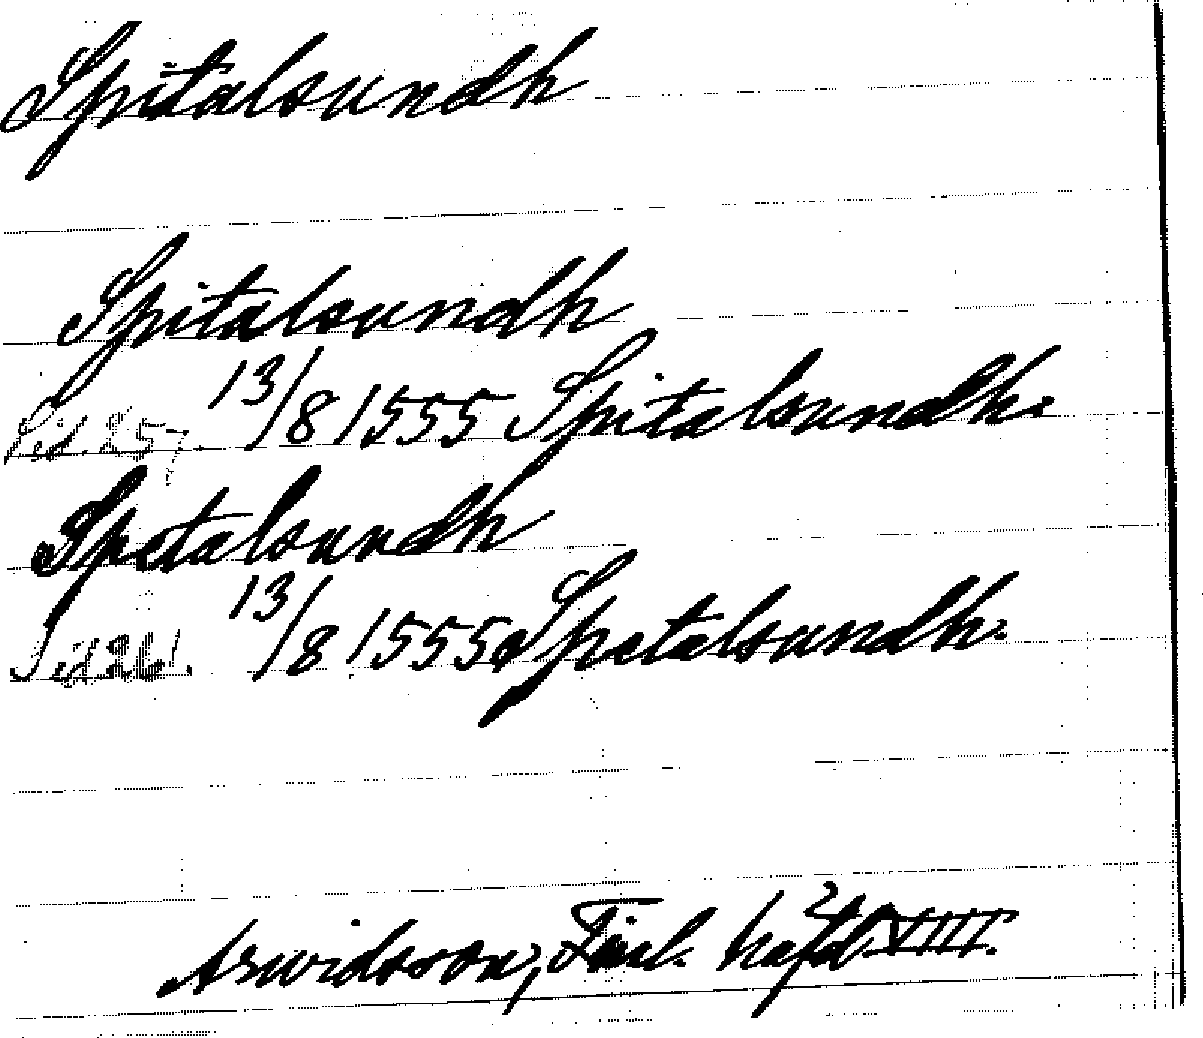 Spitalsundh
Spitalsundh
Sid. 257. 13/8 1555 Spitalsundh.
Spetalsundh
Sid 261. 13/8 1555 Spetalsundh.
Arwidsson, Finl. häfd VIII.